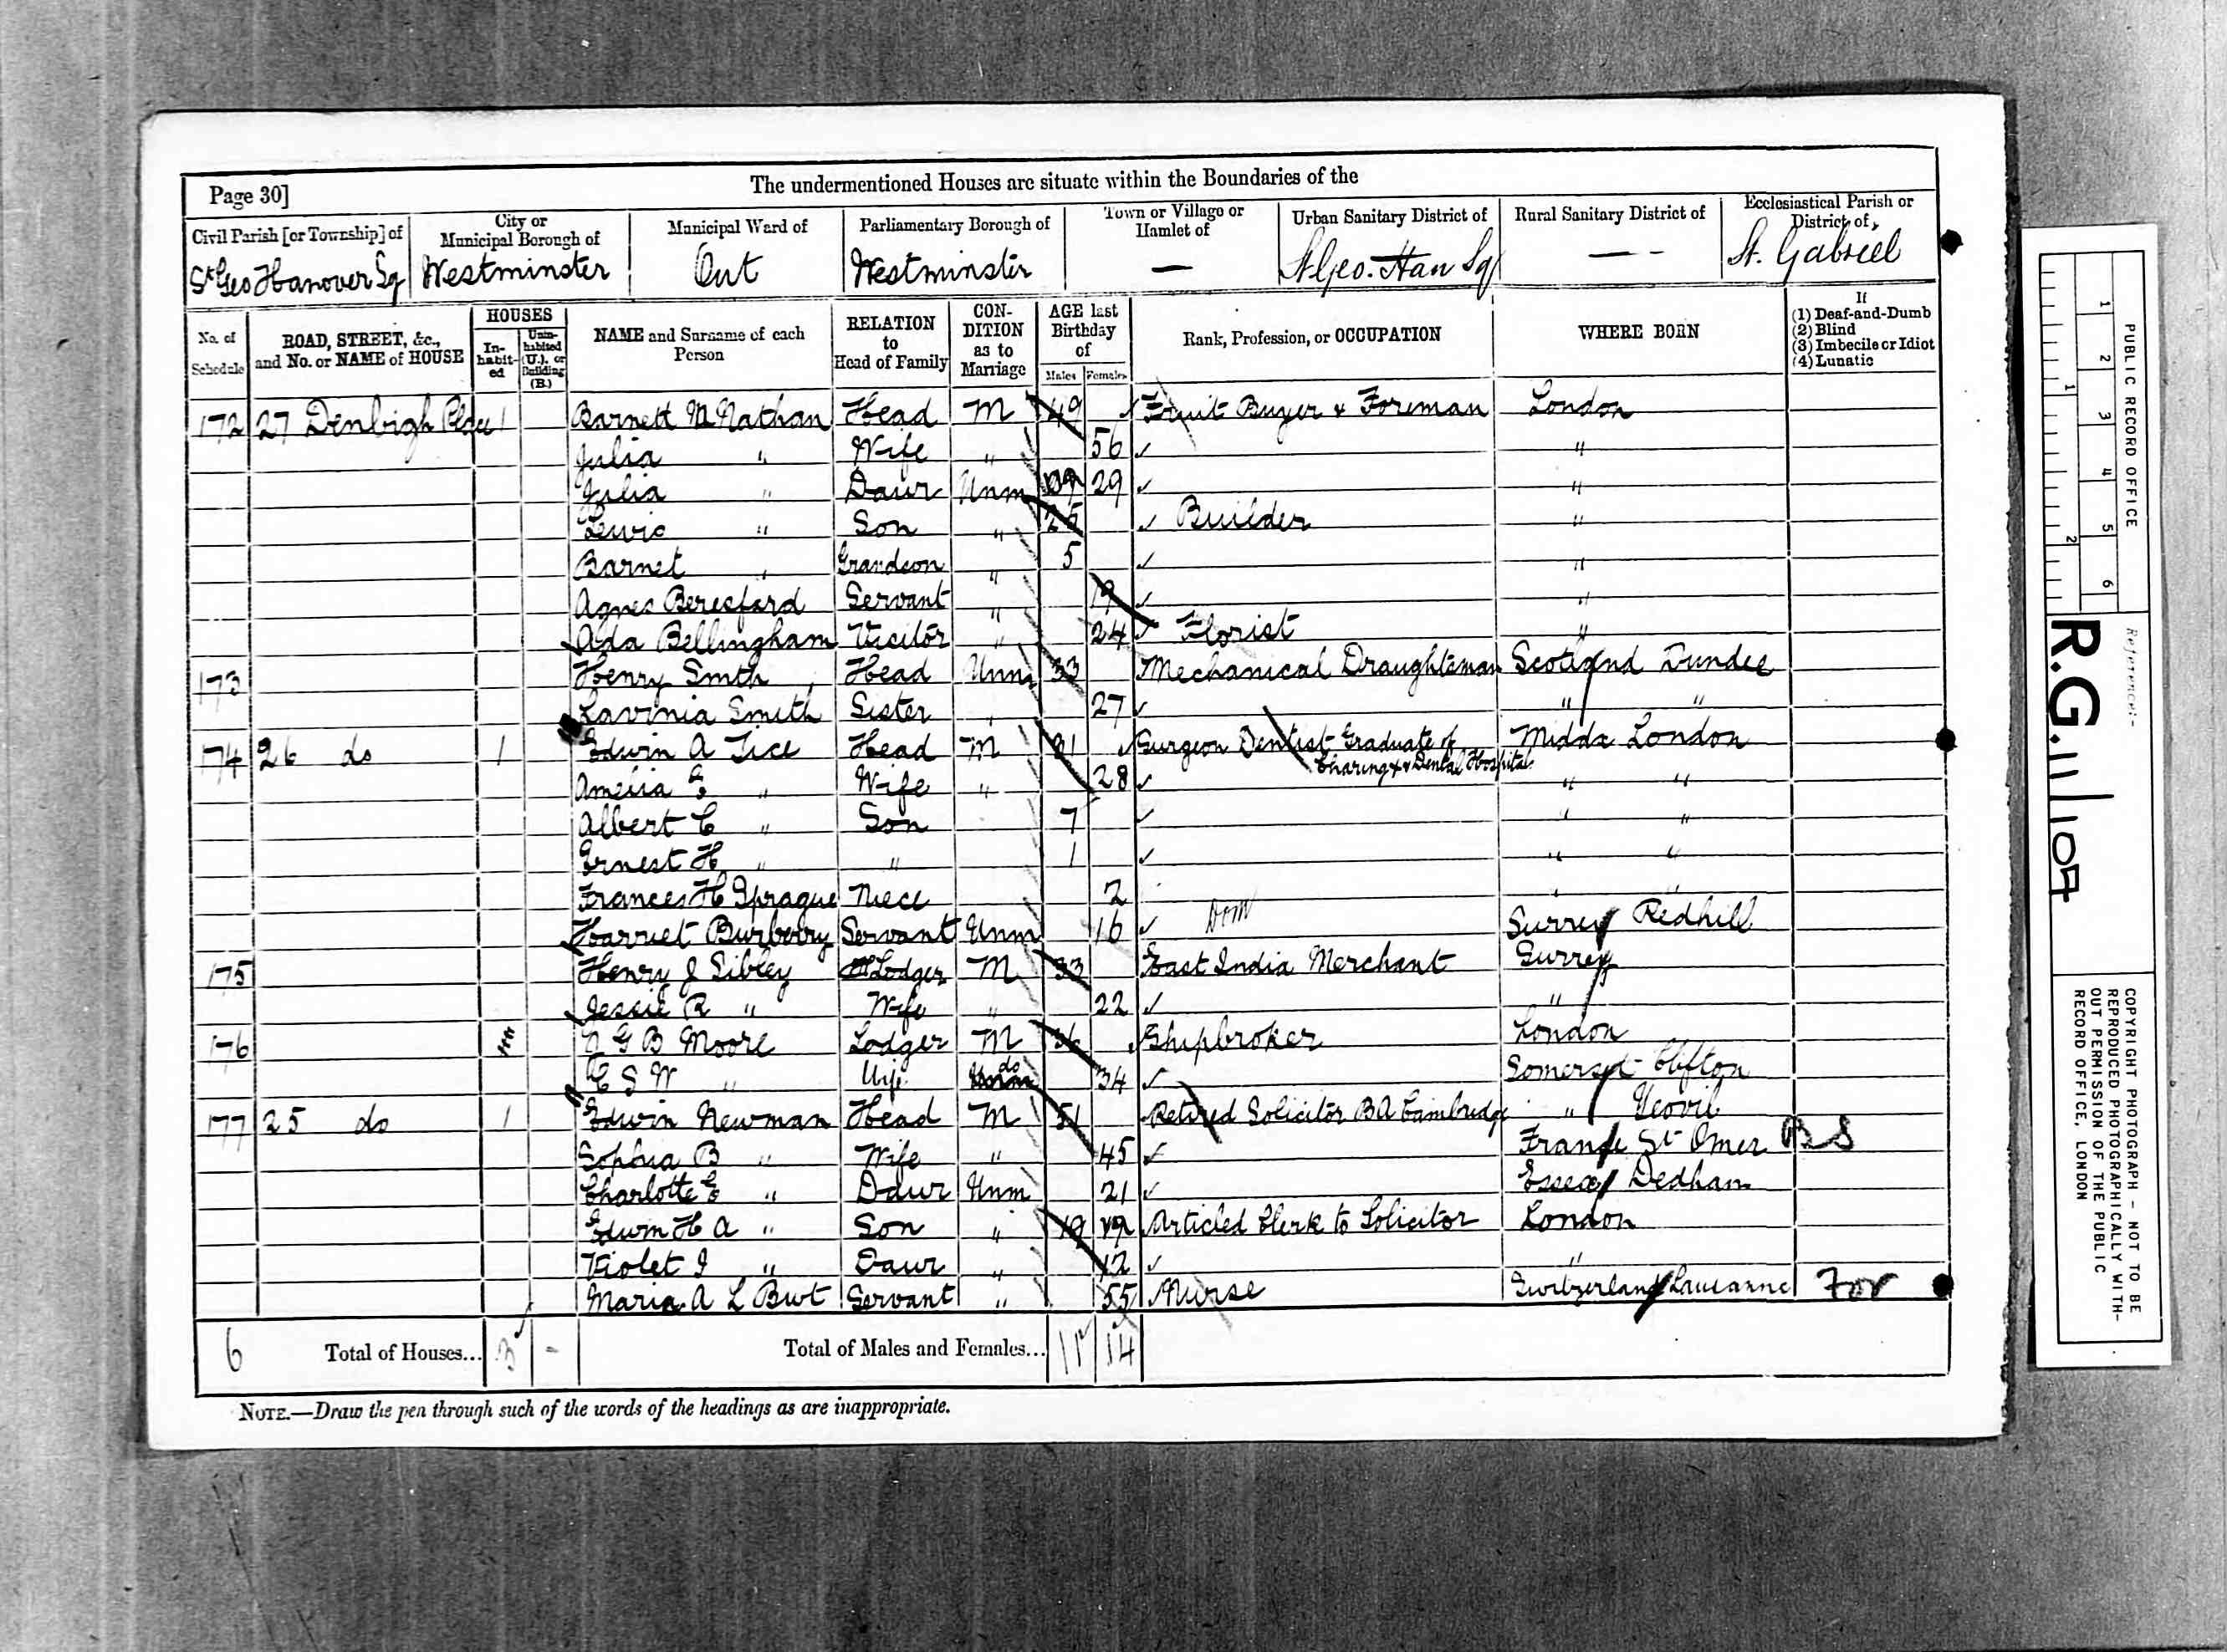 Page 30]
The undermentioned Houses are situate within the Boundaries of the
Civil Parish [or Township] of
St Geo Hanover Sq
City or Municipal Borough of
Westminster
Municipal Ward of
Out
Parliamentary Borough of
Westminster
Town or Village or Hamlet of
—
Urban Sanitary District of
St Geo. Han Sq
Rural Sanitary District of
— -
Ecclesiastical Parish or District of
St. Gabriel
No. of Schedule
ROAD, STREET, &c., and No. or NAME of HOUSE
HOUSES
In-habit-ed
Unin-habited (U.), or Building (B.)
NAME and Surname of each Person
RELATION to Head of Family
CON-DITION as to Marriage
AGE last Birthday of
Males Females
Rank, Profession, or OCCUPATION
WHERE BORN
If
(1) Deaf-and-Dumb
(2) Blind
(3) Imbecile or Idiot
(4) Lunatic
172 27 Denbigh Place 1 Barnett M Nathan Head M 49 Fruit Buyer & Foreman London
Julia " Wife " 56 "
Julia " Daur Unm 29 "
Lewis " Son " 25 Builder "
Barnet " Grandson " 5 "
Agnes Beresford Servant " 19 "
Ada Bellingham Visitor " 24 Florist "
173 Henry Smith Head Unm 33 Mechanical Draughtsman Scotland Dundee
Lavinia Smith Sister " 27 " "
174 26 do 1 Edwin A Tice Head M 31 Surgeon Dentist Graduate of Charing + & Dental Hospital Middx London
Amelia E " Wife " 28 " "
Albert C " Son 7 " "
Ernest H " " 1 " "
Frances H Sprague Niece 2 " "
Harriet Burberry Servant Unm 16 Dom Surrey Redhill
175 Henry J Sibley Lodger M 33 East India Merchant Surrey
Jessie R " Wife " 22 "
176 G B Moore Lodger M 36 Shipbroker London
E S W " Wife do 34 Somerset Clifton
177 25 do 1 Edwin Newman Head M 51 Retired Solicitor BA Cambridge " Yeovil
Sophia B " Wife " 45 France St Omer B S
Charlotte E " Daur Unm 21 Essex Dedham
Edwin H A " Son " 19 Articled Clerk to Solicitor London
Violet I " Daur " 12 "
Maria A L Burt Servant " 55 Nurse Switzerland Lausanne For
6 Total of Houses... 3 - Total of Males and Females... 11 14
NOTE.—Draw the pen through such of the words of the headings as are inappropriate.
PUBLIC RECORD OFFICE
1 2 3 4 5 6
1 2
Reference:-
R.G.11/107
COPYRIGHT PHOTOGRAPH - NOT TO BE
REPRODUCED PHOTOGRAPHICALLY WITH-
OUT PERMISSION OF THE PUBLIC
RECORD OFFICE, LONDON